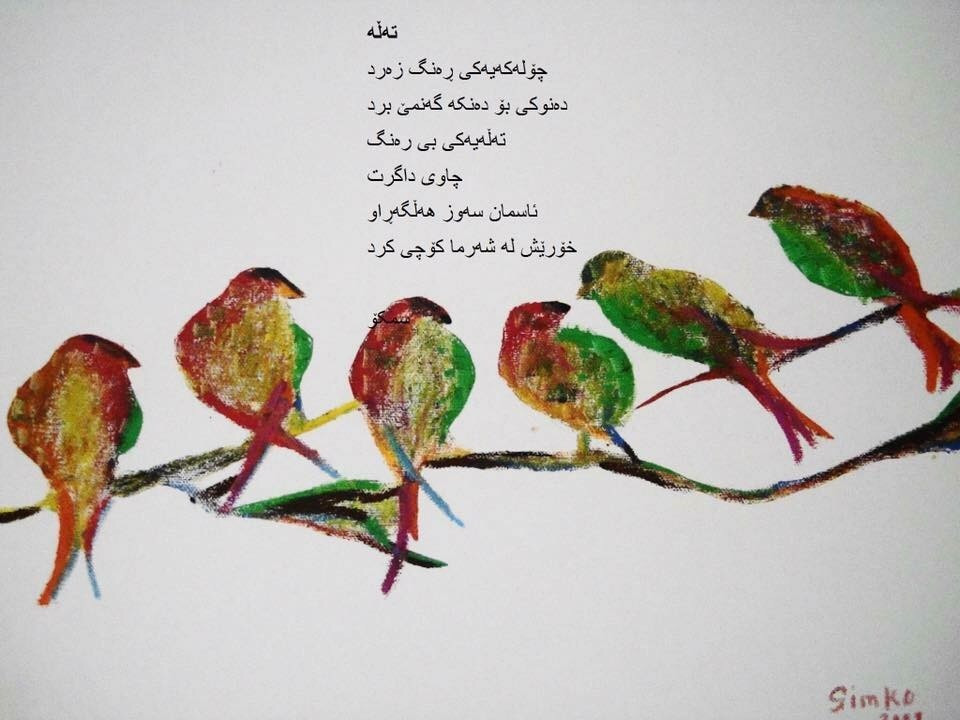 تەڵە
چۆلەکەیەکی ڕەنگ زەرد
دەنوکی بۆ دەنکە گەنمێ برد
تەڵەیەکی بی رەنگ
چاوی داگرت
ئاسمان سەوز هەڵگەڕاو
خۆرێش لە شەرما کۆچی کرد
سمکۆ
Simko